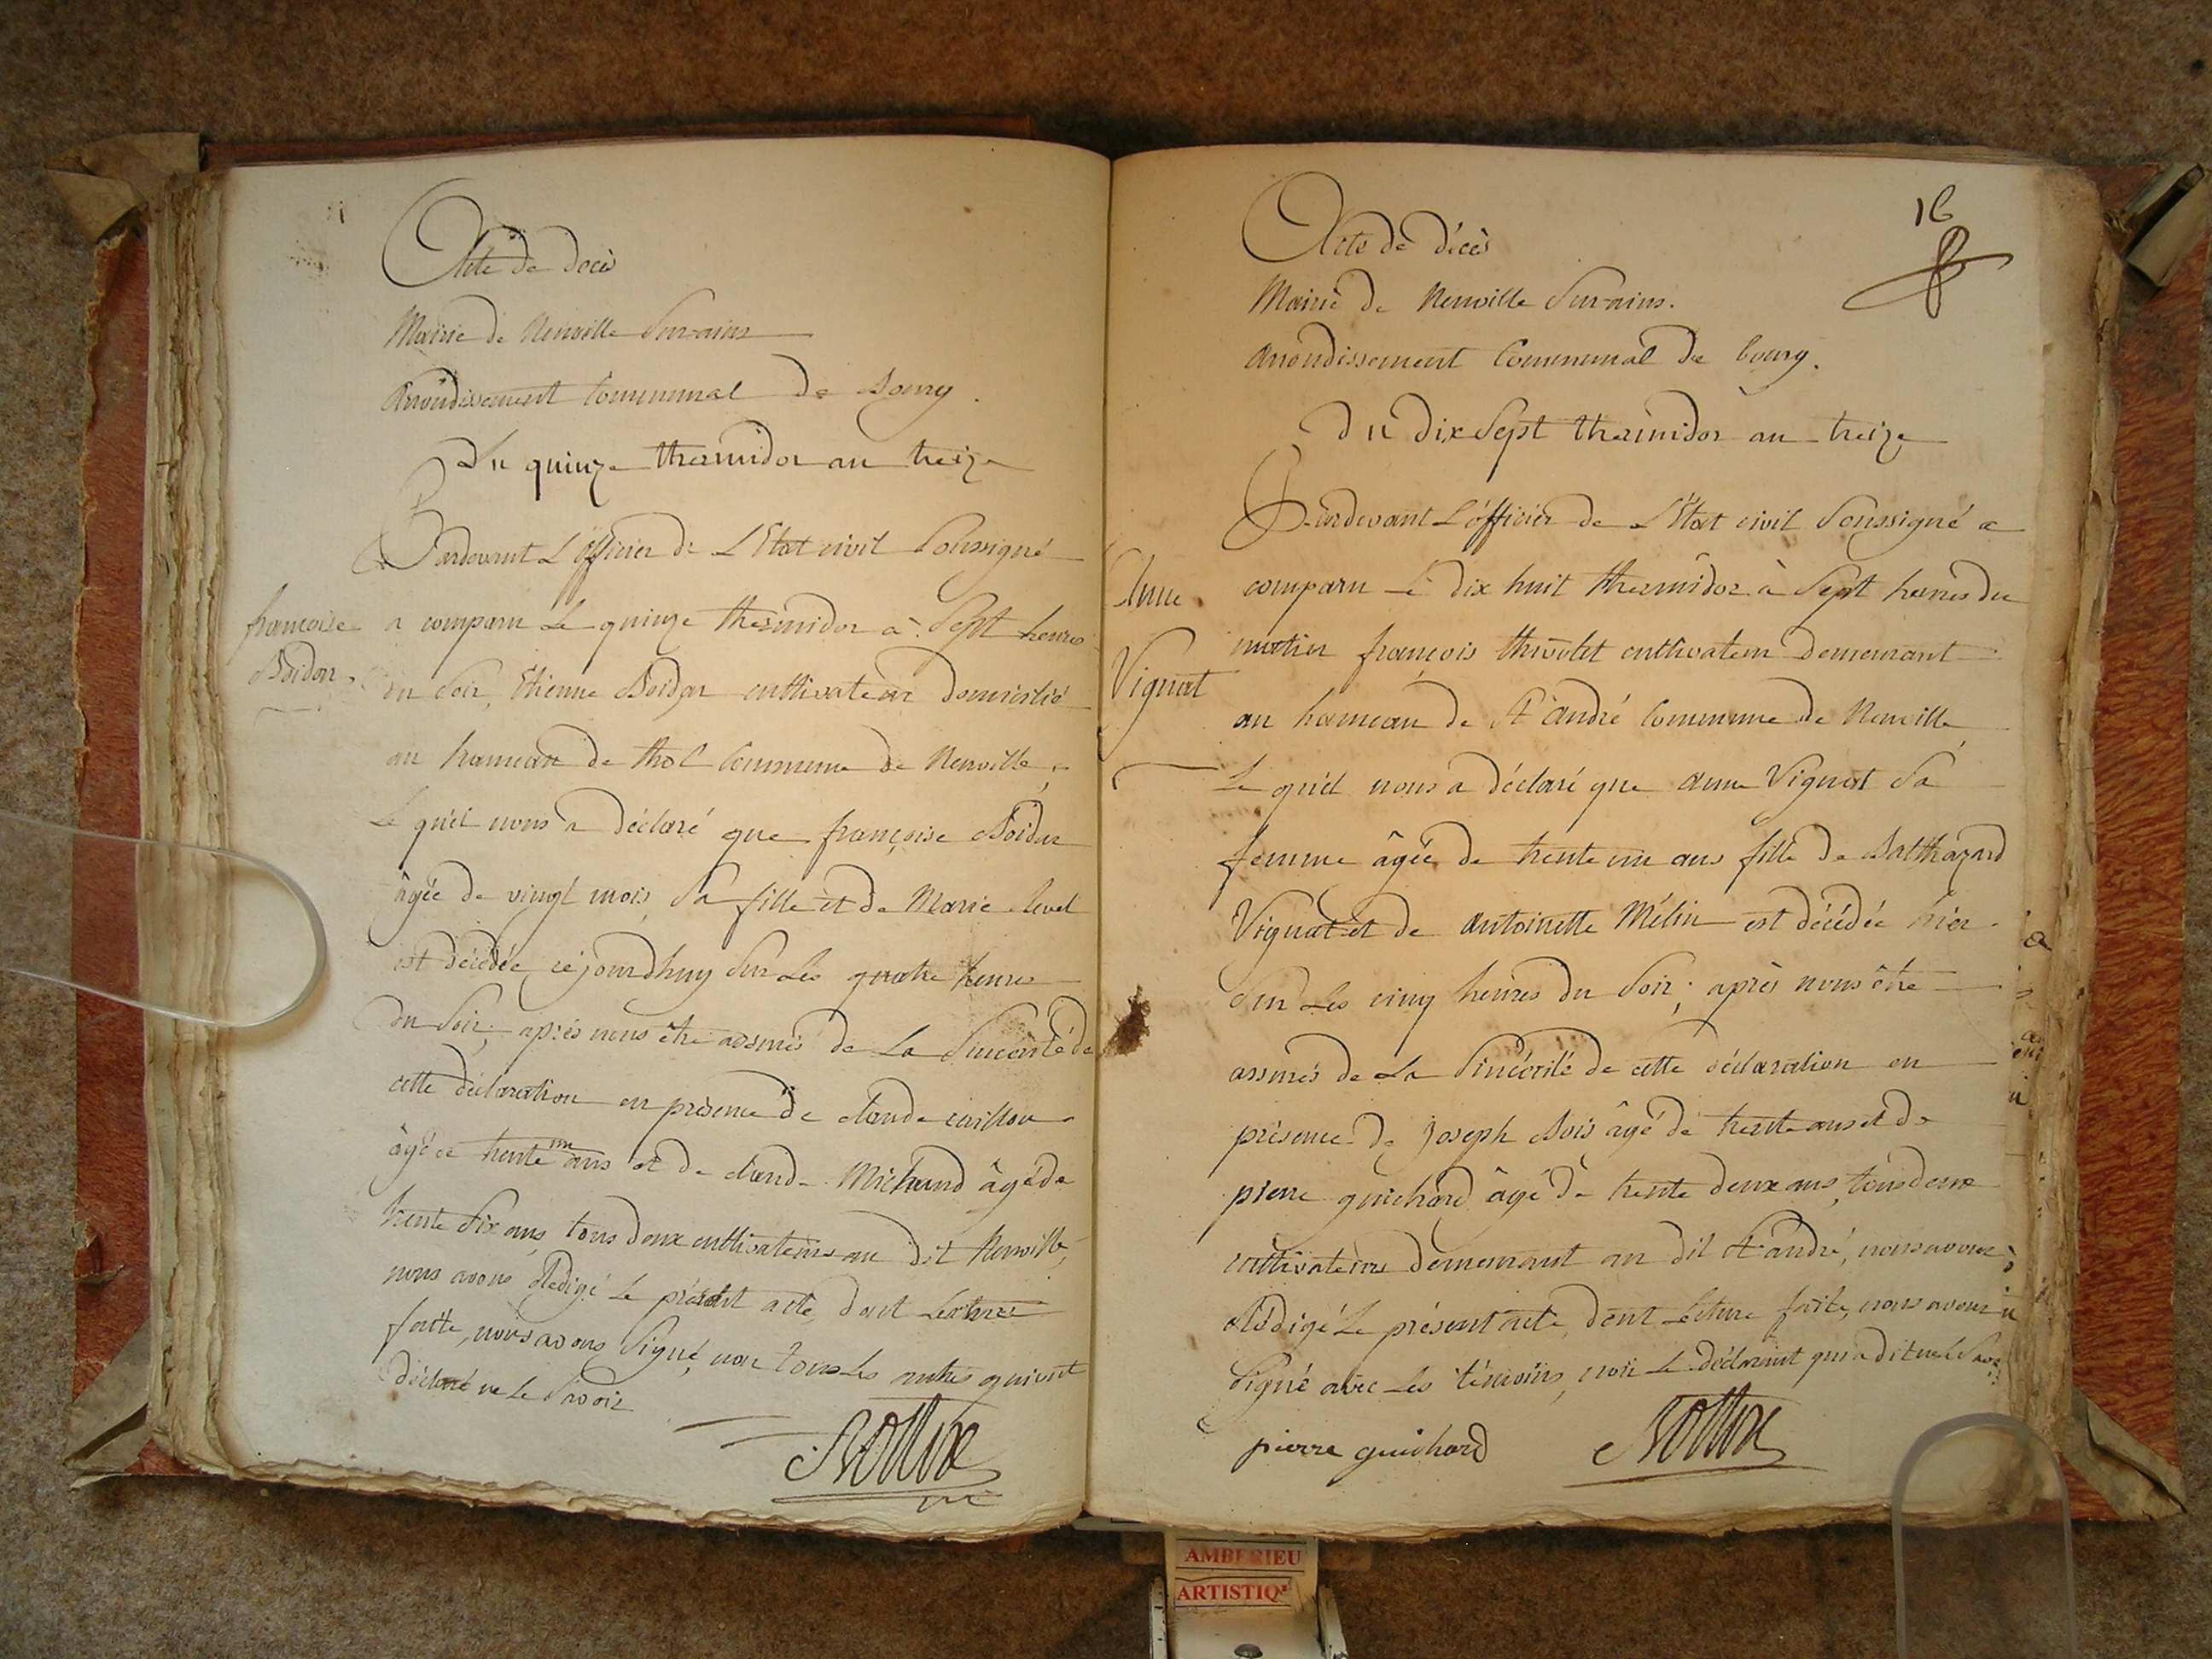 Acte de decès
Mairie de Neuville Sur-ains
arrondissement Communal de Bourg.
Du quinze thermidor an treize
Pardevant L'officier de L'Etat civil Soussigné
françoise
Boidar.
a comparu Le quinze thermidor à Sept heures
du Soir, Etienne Boidar cultivateur domicilié
au hameau de thol Commune de Neuville,
Le quel nous a déclaré que françoise Boidar
âgée de vingt mois, Sa fille et de Marie
est décédée ce jourdhuy Sur Les quatre heures
du Soir; après nous être assurés de La Sincérité de
cette déclaration en présence de claude
âgé de trente un ans et de claude Michaud âgé de
trente Six ans, tous deux cultivateurs au dit Neuville,
nous avons Rédigé Le présent acte, dont Lecture
faite, nous avons Signé, non tous Les autres qui ont
déclaré ne Le Savoir
16
Acte de décès
Mairie de Neuville Sur-ains.
arrondissement Communal de bourg.
du dix Sept thermidor an treize
Pardevant L'officier de L'Etat civil Soussigné a
Anne
Vignat
comparu Le dix huit thermidor à Sept heures du
matin françois thivolet cultivateur demeurant
au hameau de St andré Commune de Neuville,
Le quel nous a déclaré que anne Vignat Sa
femme âgée de trente un ans fille de Balthazard
Vignat et de antoinette Mélin est décédée hier
Sur Les cinq heures du Soir; après nous être
assurés de La Sincérité de cette déclaration en
présence de Joseph Bois âgé de trente ans et de
pierre guichard âgé de trente deux ans, tous deux
cultivateurs demeurant au dit St andré, nous avons
Rédigé Le présent acte, dont Lecture faite, nous avons
Signé avec Les témoins, non Le déclarant qui a dit ne Le Savoir
pierre guichard
AMBERIEU
ARTISTIQ